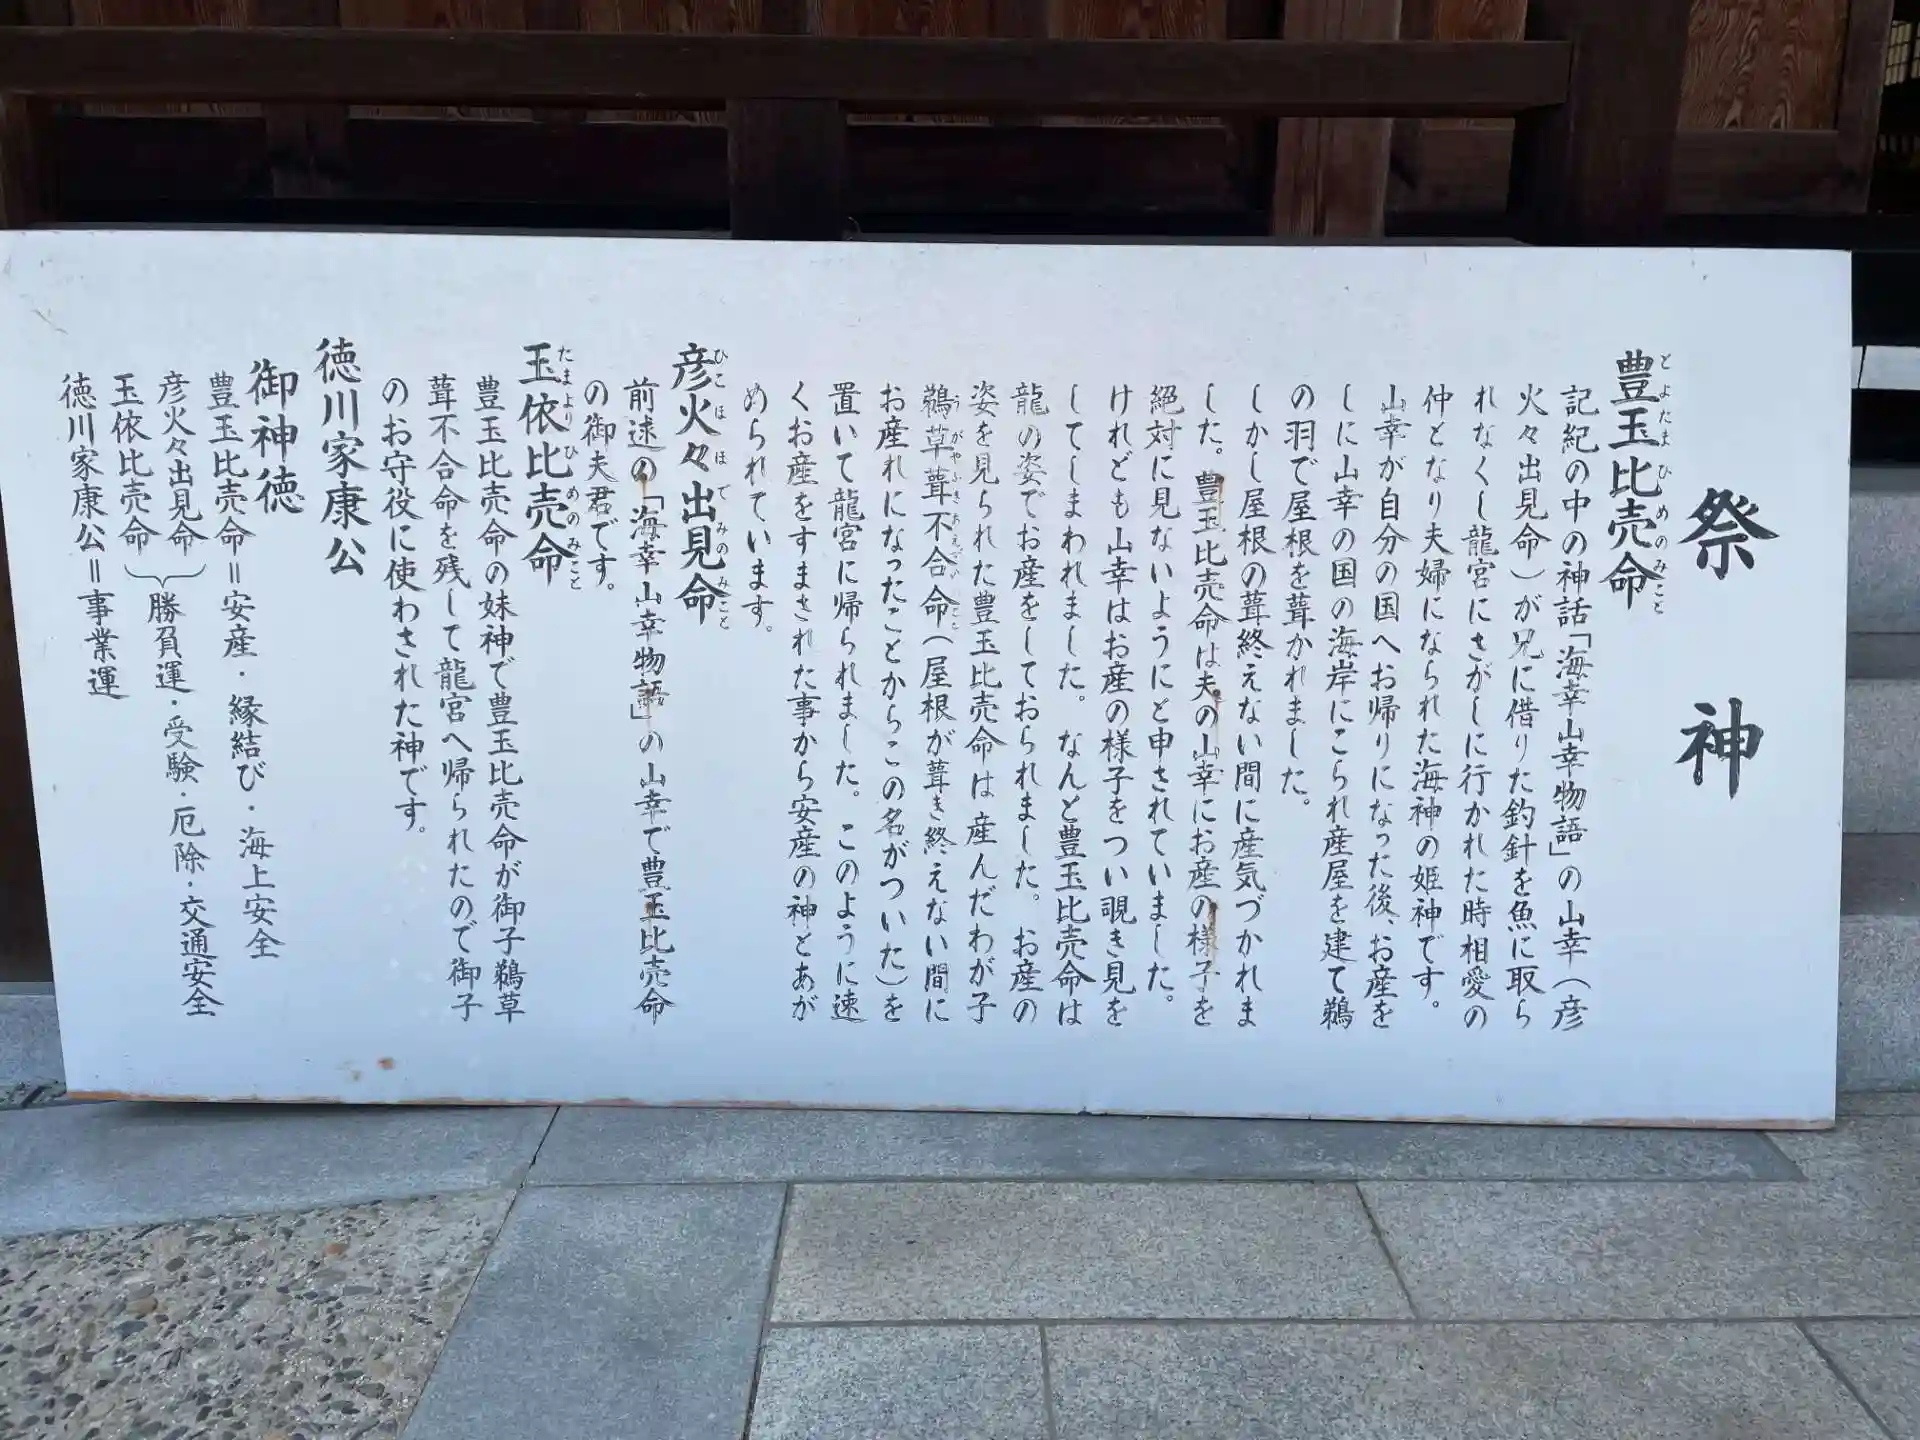 祭神
豊玉比売命
とよたまひめのみこと
記紀の中の神話「海幸山幸物語」の山幸(彦
火々出見命)が兄に借りた釣針を魚に取ら
れなくし龍宮にさがしに行かれた時相愛の
仲となり夫婦になられた海神の姫神です。
山幸が自分の国へお帰りになった後、お産を
しに山幸の国の海岸にこられ産屋を建て鵜
の羽で屋根を葺かれました。
しかし屋根の葺終えない間に産気づかれま
した。豊玉比売命は夫の山幸にお産の様子を
絶対に見ないようにと申されていました。
けれども山幸はお産の様子をつい覗き見を
してしまわれました。なんと豊玉比売命は
龍の姿でお産をしておられました。お産の
姿を見られた豊玉比売命は産んだわが子
鵜草葺不合命(屋根が葺き終えない間に
お産れになったことからこの名がついた)を
置いて龍宮に帰られました。このように速
くお産をすまされた事から安産の神とあが
められています。
彦火々出見命
ひこほほでみのみこと
前述の「海幸山幸物語」の山幸で豊玉比売命
の御夫君です。
玉依比売命
たまよりひめのみこと
豊玉比売命の妹神で豊玉比売命が御子鵜草
葺不合命を残して龍宮へ帰られたので御子
のお守役に使わされた神です。
徳川家康公
御神徳
豊玉比売命=安産・縁結び・海上安全
彦火々出見命
玉依比売命
勝負運・受験・厄除・交通安全
徳川家康公=事業運